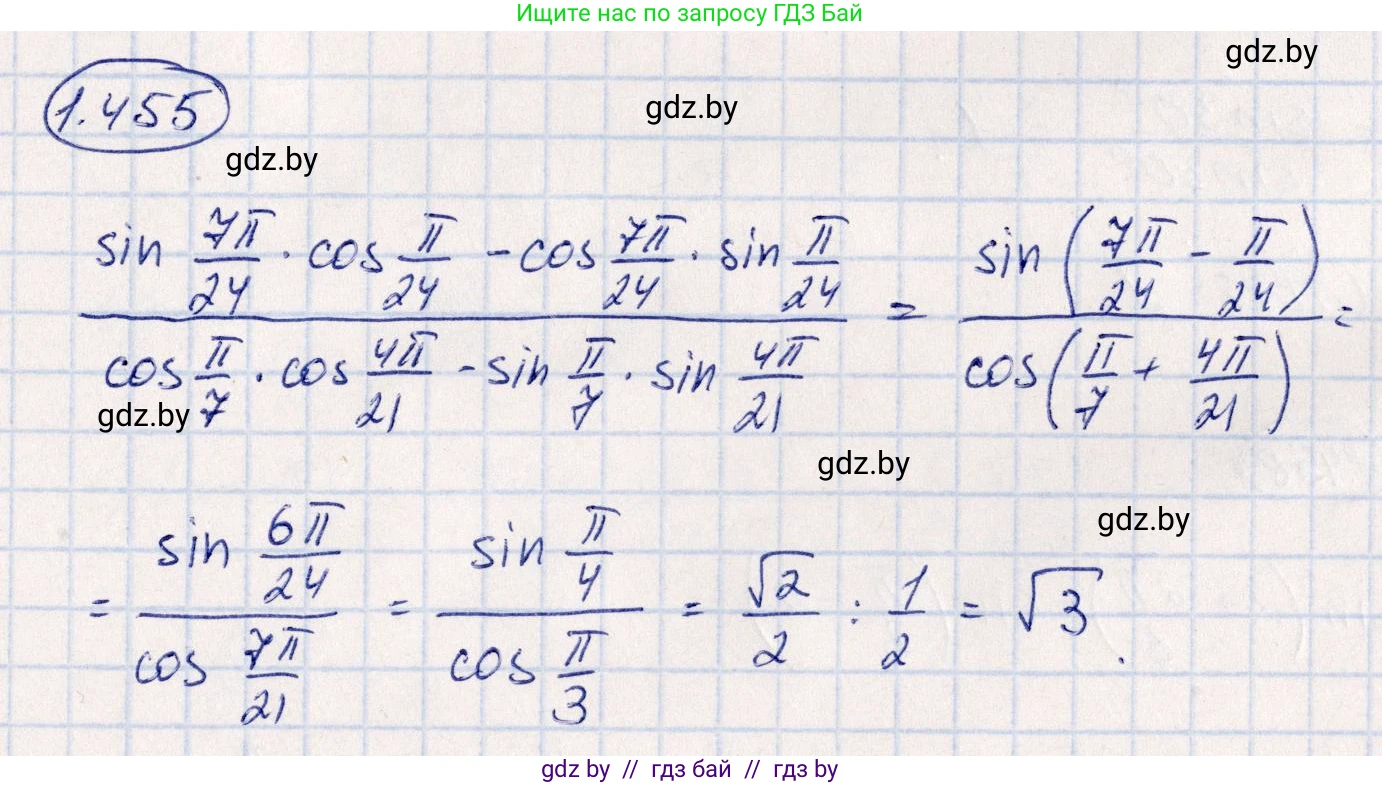 Ищите нас по запросу ГДЗ Бай
gdz.by
1.455
gdz.by
gdz.by
(sin 7π/24 · cos π/24 - cos 7π/24 · sin π/24) / (cos π/7 · cos 4π/21 - sin π/7 · sin 4π/21) = sin(7π/24 - π/24) / cos(π/7 + 4π/21) =
gdz.by
gdz.by
gdz.by
= sin 6π/24 / cos 7π/21 = sin π/4 / cos π/3 = √2/2 : 1/2 = √3.
gdz by // гдз бай // гдз by